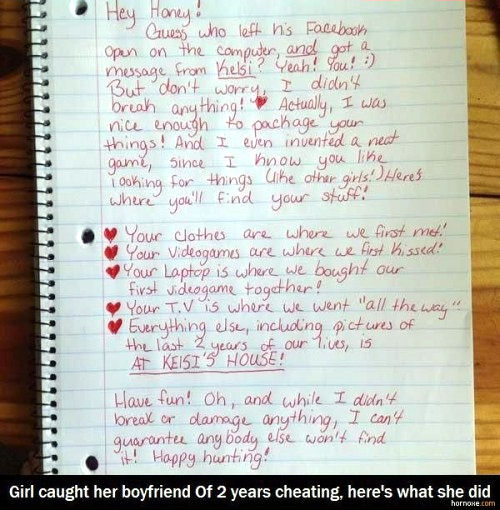 Hey Honey!
Guess who left his Facebook
open on the computer, and got a
message from Kelsi? Yeah! You! :)
But don't worry, I didn't
break anything! ♥ Actually, I was
nice enough to package your
things! And I even invented a neat
game, since I know you like
looking for things (like other girls!) Here's
where you'll find your stuff!
♥ Your clothes are where we first met!
♥ Your Videogames are where we first kissed!
♥ Your Laptop is where we bought our
first videogame together!
♥ Your T.V is where we went "all the way"!
♥ Everything else, including pictures of
the last 2 years of our lives, is
AT KElSI'S HOUSE!
Have fun! Oh, and while I didn't
break or damage anything, I can't
guarantee anybody else won't find
it! Happy hunting!
Girl caught her boyfriend Of 2 years cheating, here's what she did
hornoxe.com